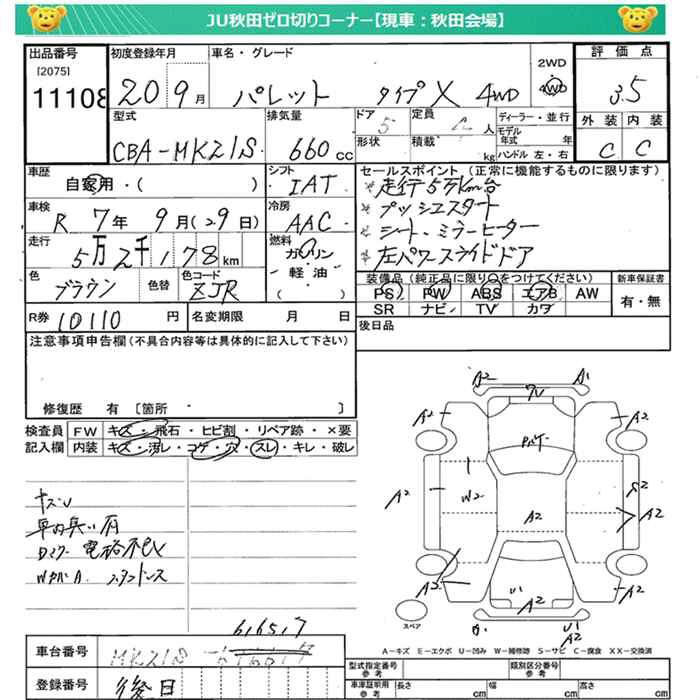 JU秋田ゼロ切りコーナー【現車：秋田会場】
出品番号
[2075]
11108
初度登録年月
20 9月
車名・グレード
パレット タイプX 4WD
2WD
4WD
評価点
3.5
外装 内装
C C
型式
CBA-MK21S
排気量
660cc
ドア
5
形状
定員
4人
積載
kg
ディーラー・並行
モデル年式 年
ハンドル 左・右
車歴
自家用・( )
シフト
IAT
車検
R 7年 9月(29日)
冷房
AAC
走行
5万2千178km
燃料
ガソリン
軽油
( )
色
ブラウン
色替
色コード
ZJR
セールスポイント (正常に機能するものに限ります)
*走行5万km台
*プッシュスタート
*シート・ミラーヒーター
*左パワースライドドア
装備品(純正品に限り○をつけてください)
PS PW ABS エアB AW
SR ナビ TV カワ
新車保証書
有・無
R券 10110円
名変期限 月 日
後日品
注意事項申告欄(不具合内容等は具体的に記入して下さい)
修復歴 有 [箇所 ・ ]
検査員記入欄
FW キズ・飛石・ヒビ割・リペア跡・×要
内装 キズ・汚レ・コゲ・穴・スレ・キレ・破レ
キズU
車内臭い有
A2 A1
A2 A2
W2
A2
A2
A2
A2 A2
A2
A2
スペア
A-キズ E-エクボ U-凹み W-補修跡 S-サビ C-腐食 XX-交換済
616517
車台番号
MK21S-
登録番号
後日
型式指定番号
参考
類別区分番号
参考
車庫証明用
参考
長さ cm
幅 cm
高さ cm